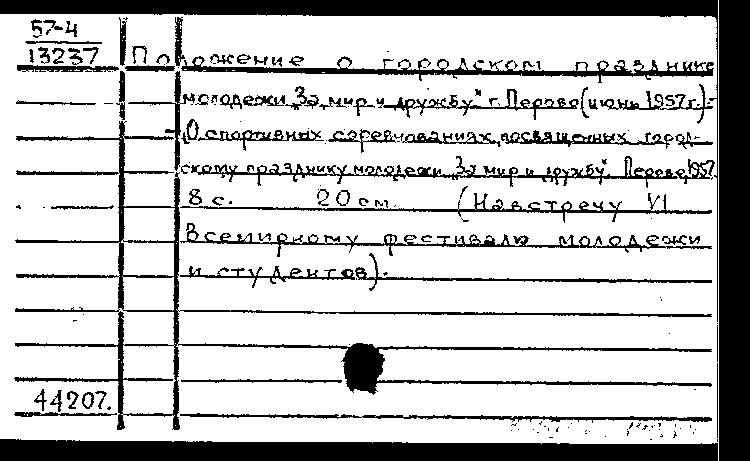 57-4
13237
Положение о городском празднике
молодежи „За мир и дружбу" г. Перово (июнь 1957 г.)=
=(О спортивных соревнованиях, посвященных город-
скому празднику молодежи „За мир и дружбу". Перово, 1957.
8 с. 20 см. (Навстречу VI
Всемирному фестивалю молодежи
и студентов).
44207.